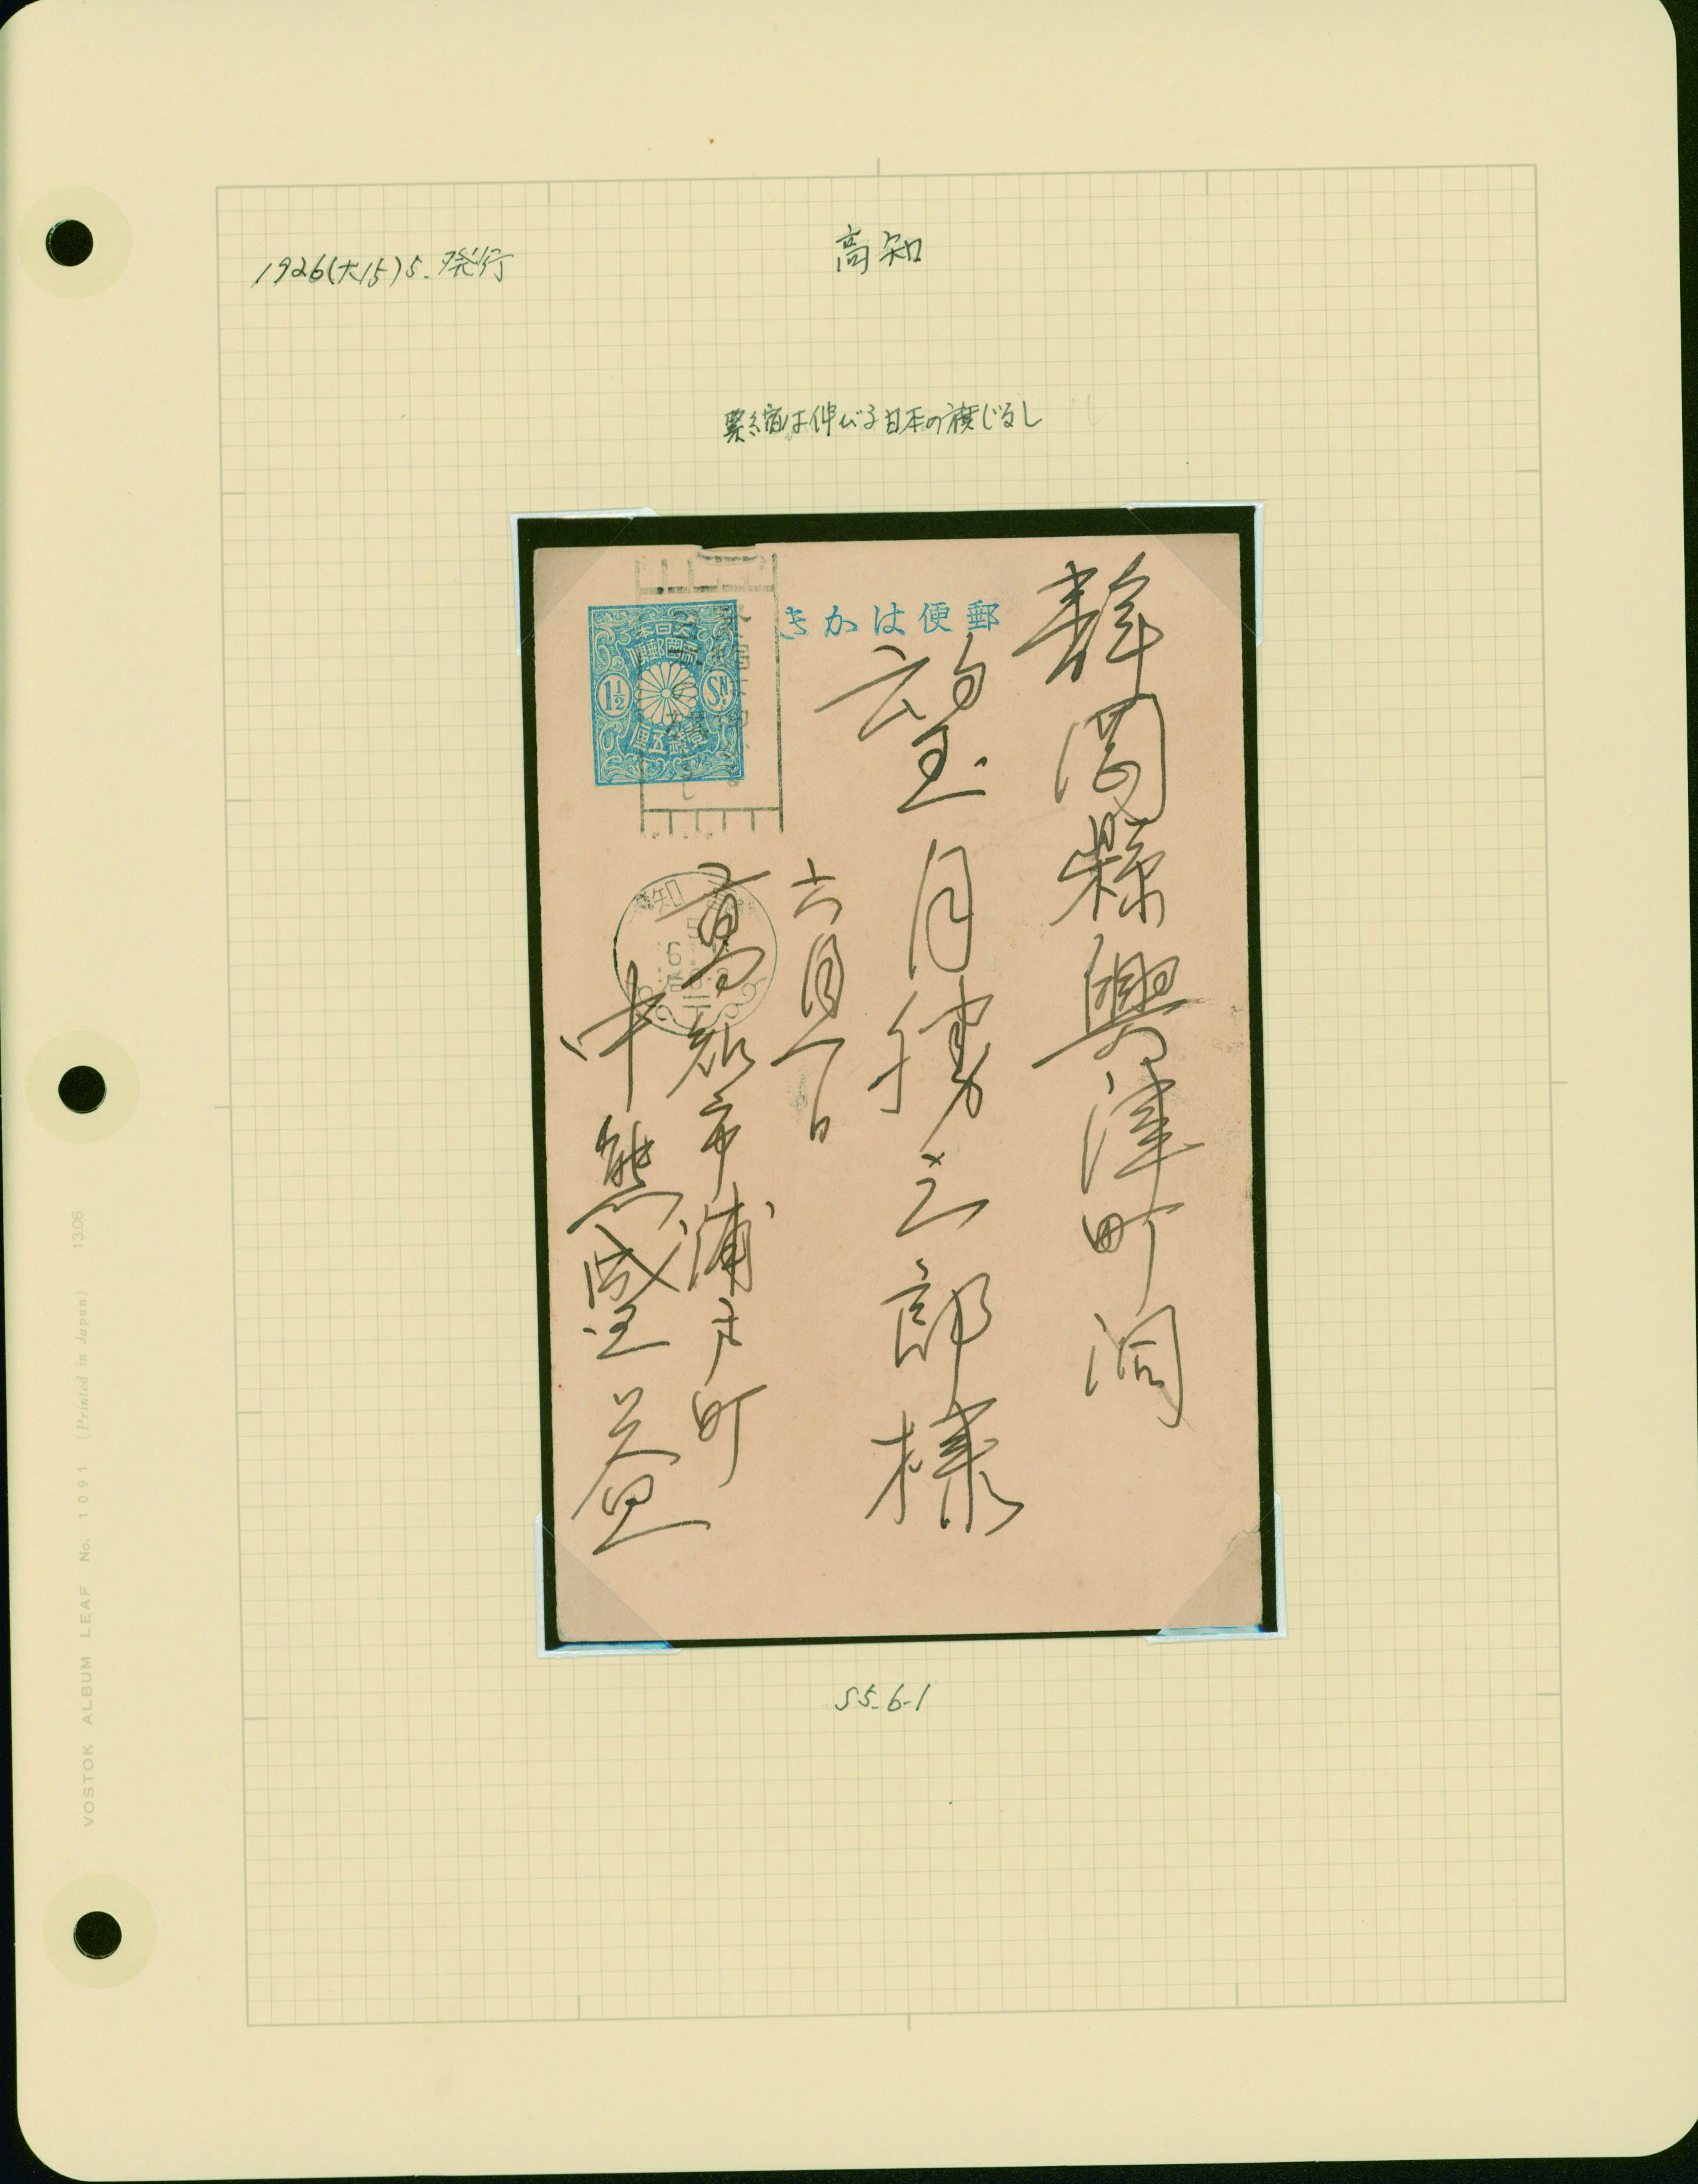 1926(大15)5.発行
高知
緊縮は伸びる日本の旗じるし
郵便はかき
大日本
帝國郵便
1½ SN.
壹錢五厘
静岡縣興津町洞
望月勝三郎様
六月一日
高知市浦戸町
中熊
益
知
5
6
S5-6-1
VOSTOK ALBUM LEAF No. 1091 (Printed in Japan) 1306